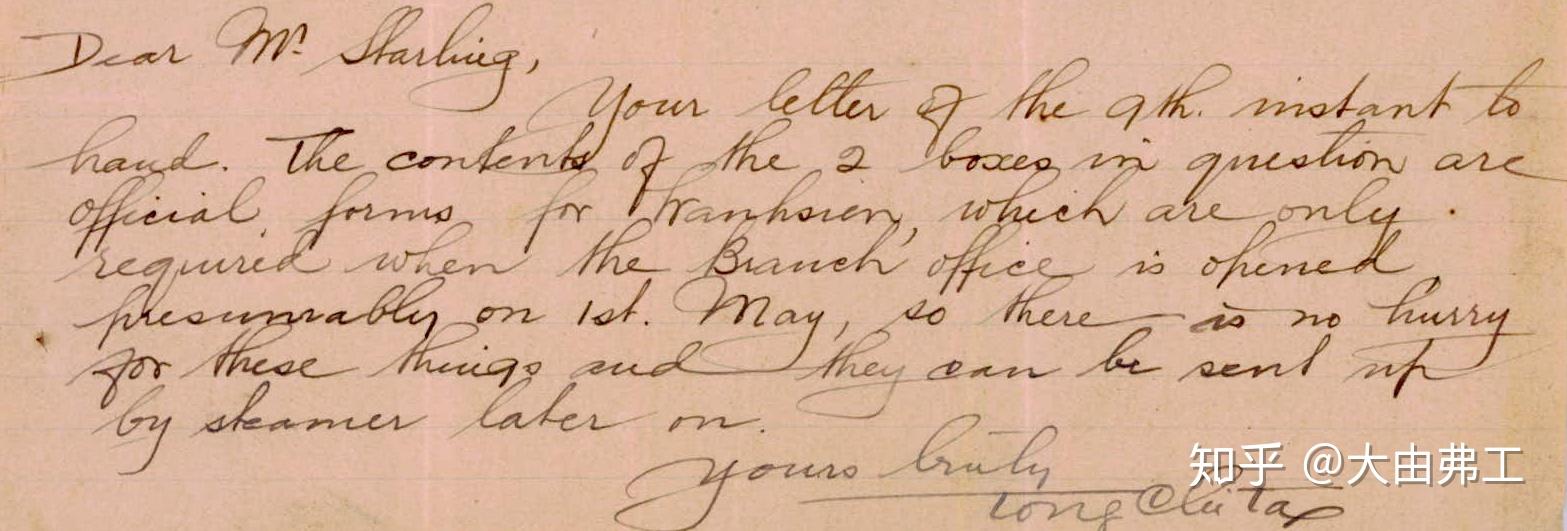 Dear Mr. Starling,
Your letter of the 9th. instant to
hand. The contents of the 2 boxes in question are
official forms for Wanhsien, which are only
required when the Branch office is opened,
presumably on 1st. May, so there is no hurry
for these things and they can be sent up
by steamer later on.
Yours truly
Tong Chi Tao
知乎 @大由弗工